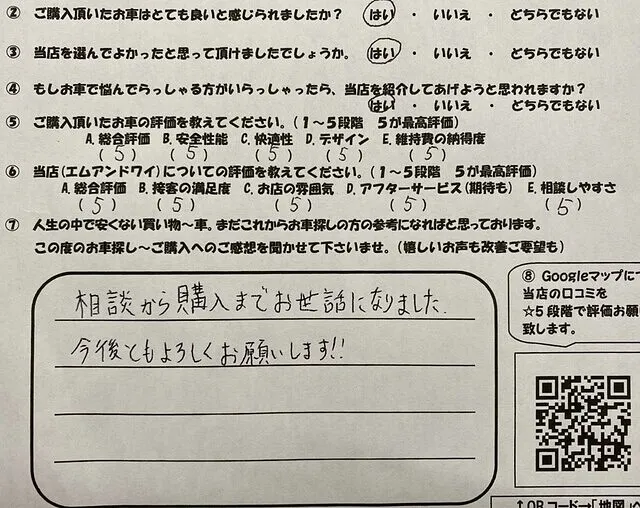 ② ご購入頂いたお車はとても良いと感じられましたか？ はい ・ いいえ ・ どちらでもない
③ 当店を選んでよかったと思って頂けましたでしょうか。 はい ・ いいえ ・ どちらでもない
④ もしお車で悩んでらっしゃる方がいらっしゃったら、当店を紹介してあげようと思われますか？
はい ・ いいえ ・ どちらでもない
⑤ ご購入頂いたお車の評価を教えてください。（１～５段階 ５が最高評価）
A.総合評価 B.安全性能 C.快適性 D.デザイン E.維持費の納得度
(5) (5) (5) (5) (5)
⑥ 当店(エムアンドワイ)についての評価を教えてください。（１～５段階 ５が最高評価）
A.総合評価 B.接客の満足度 C.お店の雰囲気 D.アフターサービス(期待も) E.相談しやすさ
(5) (5) (5) (5) (5)
⑦ 人生の中で安くない買い物～車。まだこれからお車探しの方の参考になればと思っております。
この度のお車探し～ご購入へのご感想を聞かせて下さいませ。（嬉しいお声も改善ご要望も）
相談から購入までお世話になりました.
今後ともよろしくお願いします!!
⑧ Googleマップにて
当店の口コミを
☆５段階で評価お願
致します。
↑QRコード→「地図」へ